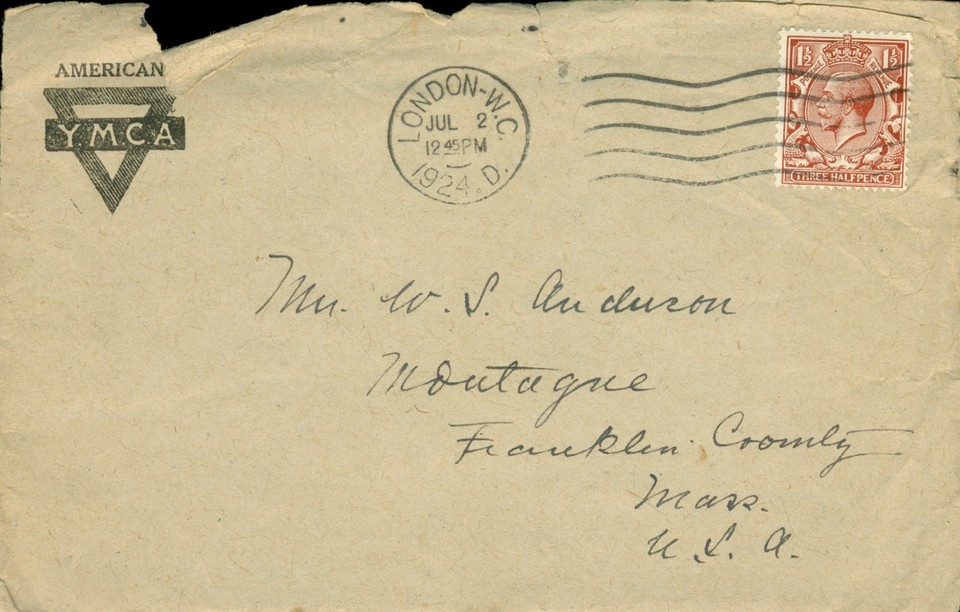 AMERICAN
YMCA
LONDON-W.C.
JUL 2
12 45 PM
1924. D.
1½ POSTAGE REVENUE 1½
THREE HALFPENCE
Mr. W. S. Anderson
Montague
Franklin County
Mass.
U. S. A.